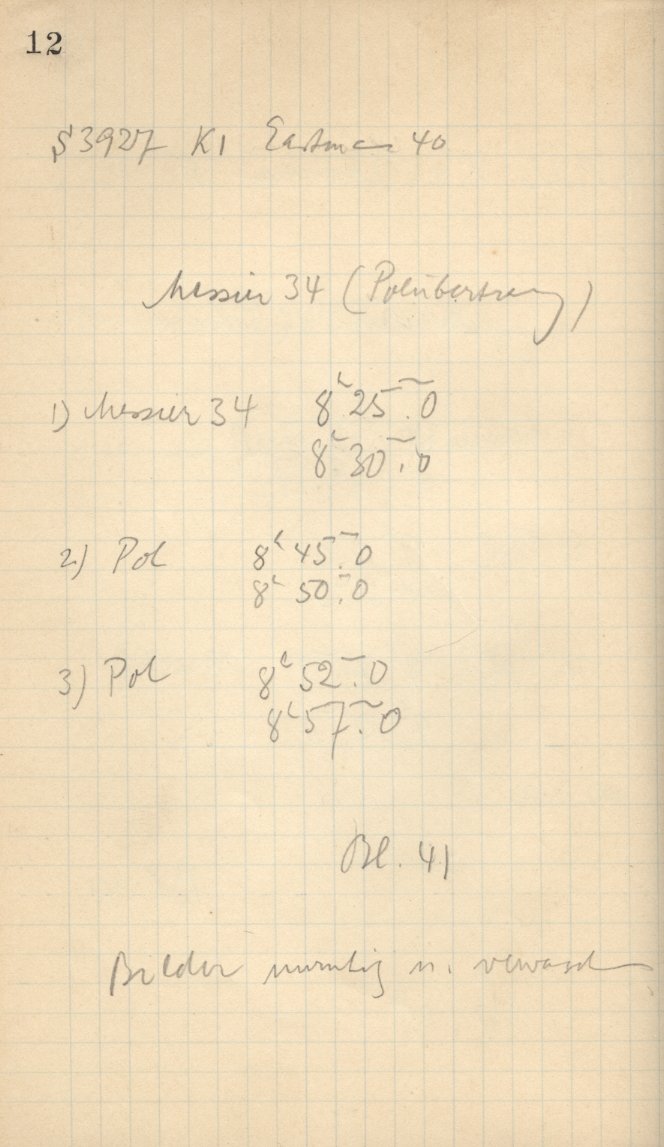 12
S 3927 K1 Eastman 40
Messier 34 (Polübertragung)
1) Messier 34 8ʰ 25ᵐ.0
8ʰ 30ᵐ.0
2) Pol 8ʰ 45ᵐ.0
8ʰ 50ᵐ.0
3) Pol 8ʰ 52ᵐ.0
8ʰ 57ᵐ.0
Bl. 41
Bilder unruhig u. verwaschen